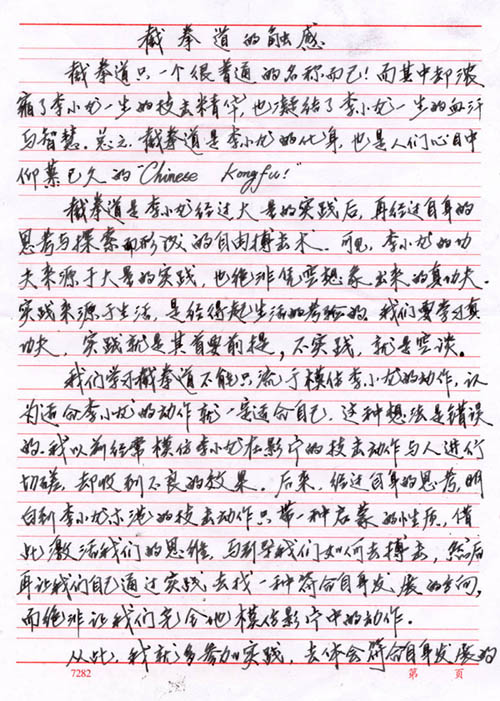 截拳道的融感
截拳道只一个很普通的名称而已！而其中却浓
缩了李小龙一生的技击精华，也凝结了李小龙一生的血汗
与智慧。总之，截拳道是李小龙的化身，也是人们心目中
仰慕已久的“Chinese Kongfu！”
截拳道是李小龙经过大量的实践后，再经过自身的
思考与探索而形成的自由搏击术。可见，李小龙的功
夫来源于大量的实践，也绝非凭空想象出来的真功夫。
实践来源于生活，是经得起生活的考验的。我们要学习真
功夫，实践就是其首要前提，不实践，就是空谈。
我们学习截拳道不能只流于模仿李小龙的动作，认
为适合李小龙的动作就一定适合自己，这种想法是错误
的。我以前经常模仿李小龙在影片的技击动作与人进行
切磋，却收到不良的效果。后来，经过自身的思考，明
白到李小龙示范的技击动作只带一种启蒙的性质，借
此激活我们的思维，与引导我们如何去搏击，然后
再让我们自己通过实践去找一种符合自身发展的方向，
而绝非让我们完全地模仿影片中的动作。
从此，我就多参加实践，去体会符合自身发展的
7282 第 頁